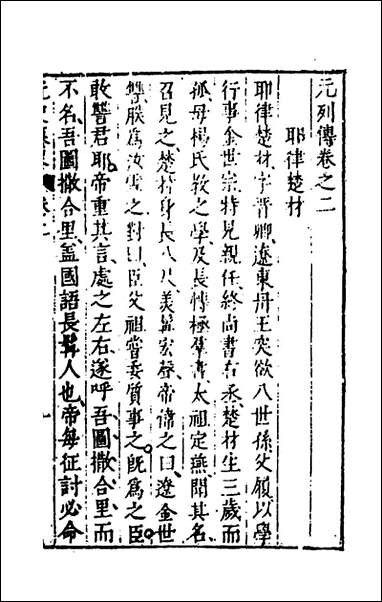 元列傳卷之二
耶律楚材
耶律楚材字晉卿遼東丹王突欲八世孫父履以學
行事金世宗特見親任終尚書右丞楚材生三歲而
孤母楊氏教之學及長博極羣書太祖定燕聞其名
召見之楚材身長八尺美髯宏聲帝偉之曰遼金世
讐朕為汝雪之對曰臣父祖嘗委質事之既為之臣
敢讐君耶帝重其言處之左右遂呼吾圖撒合里而
不名吾圖撒合里葢國語長髯人也帝每征討必命